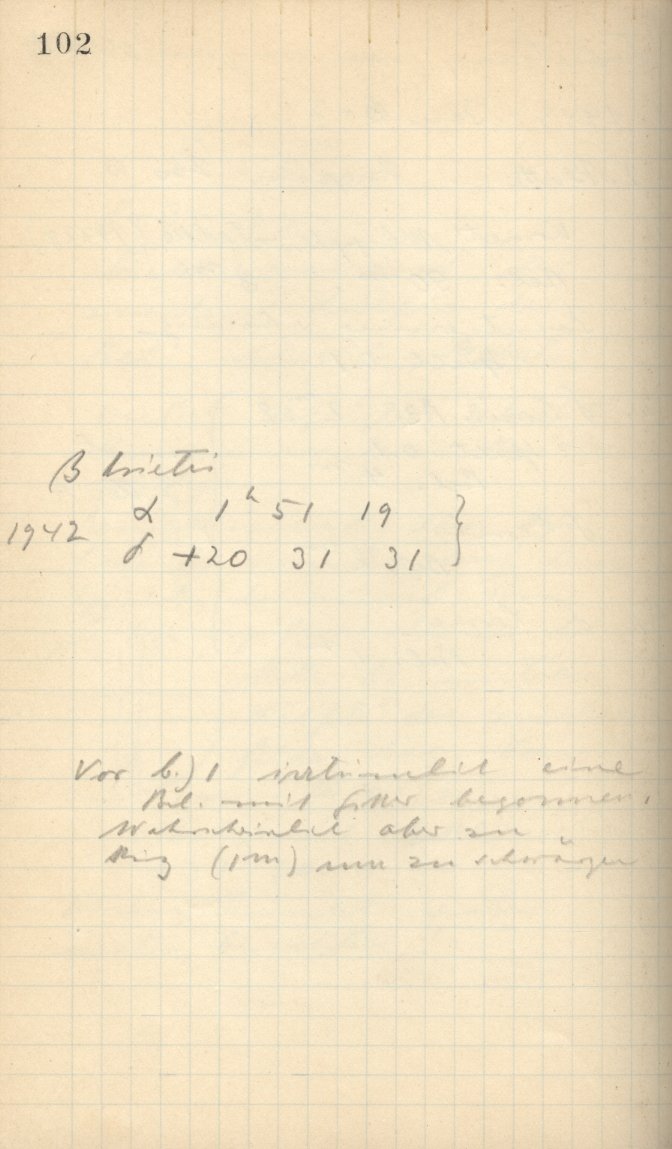 102
β Arietis
α 1ʰ 51 19
1942
δ +20 31 31
Vor b.) 1 irrtümlich eine
Bel. mit Gitter begonnen,
Wahrscheinlich aber zu
(1m) um zu schwärzen